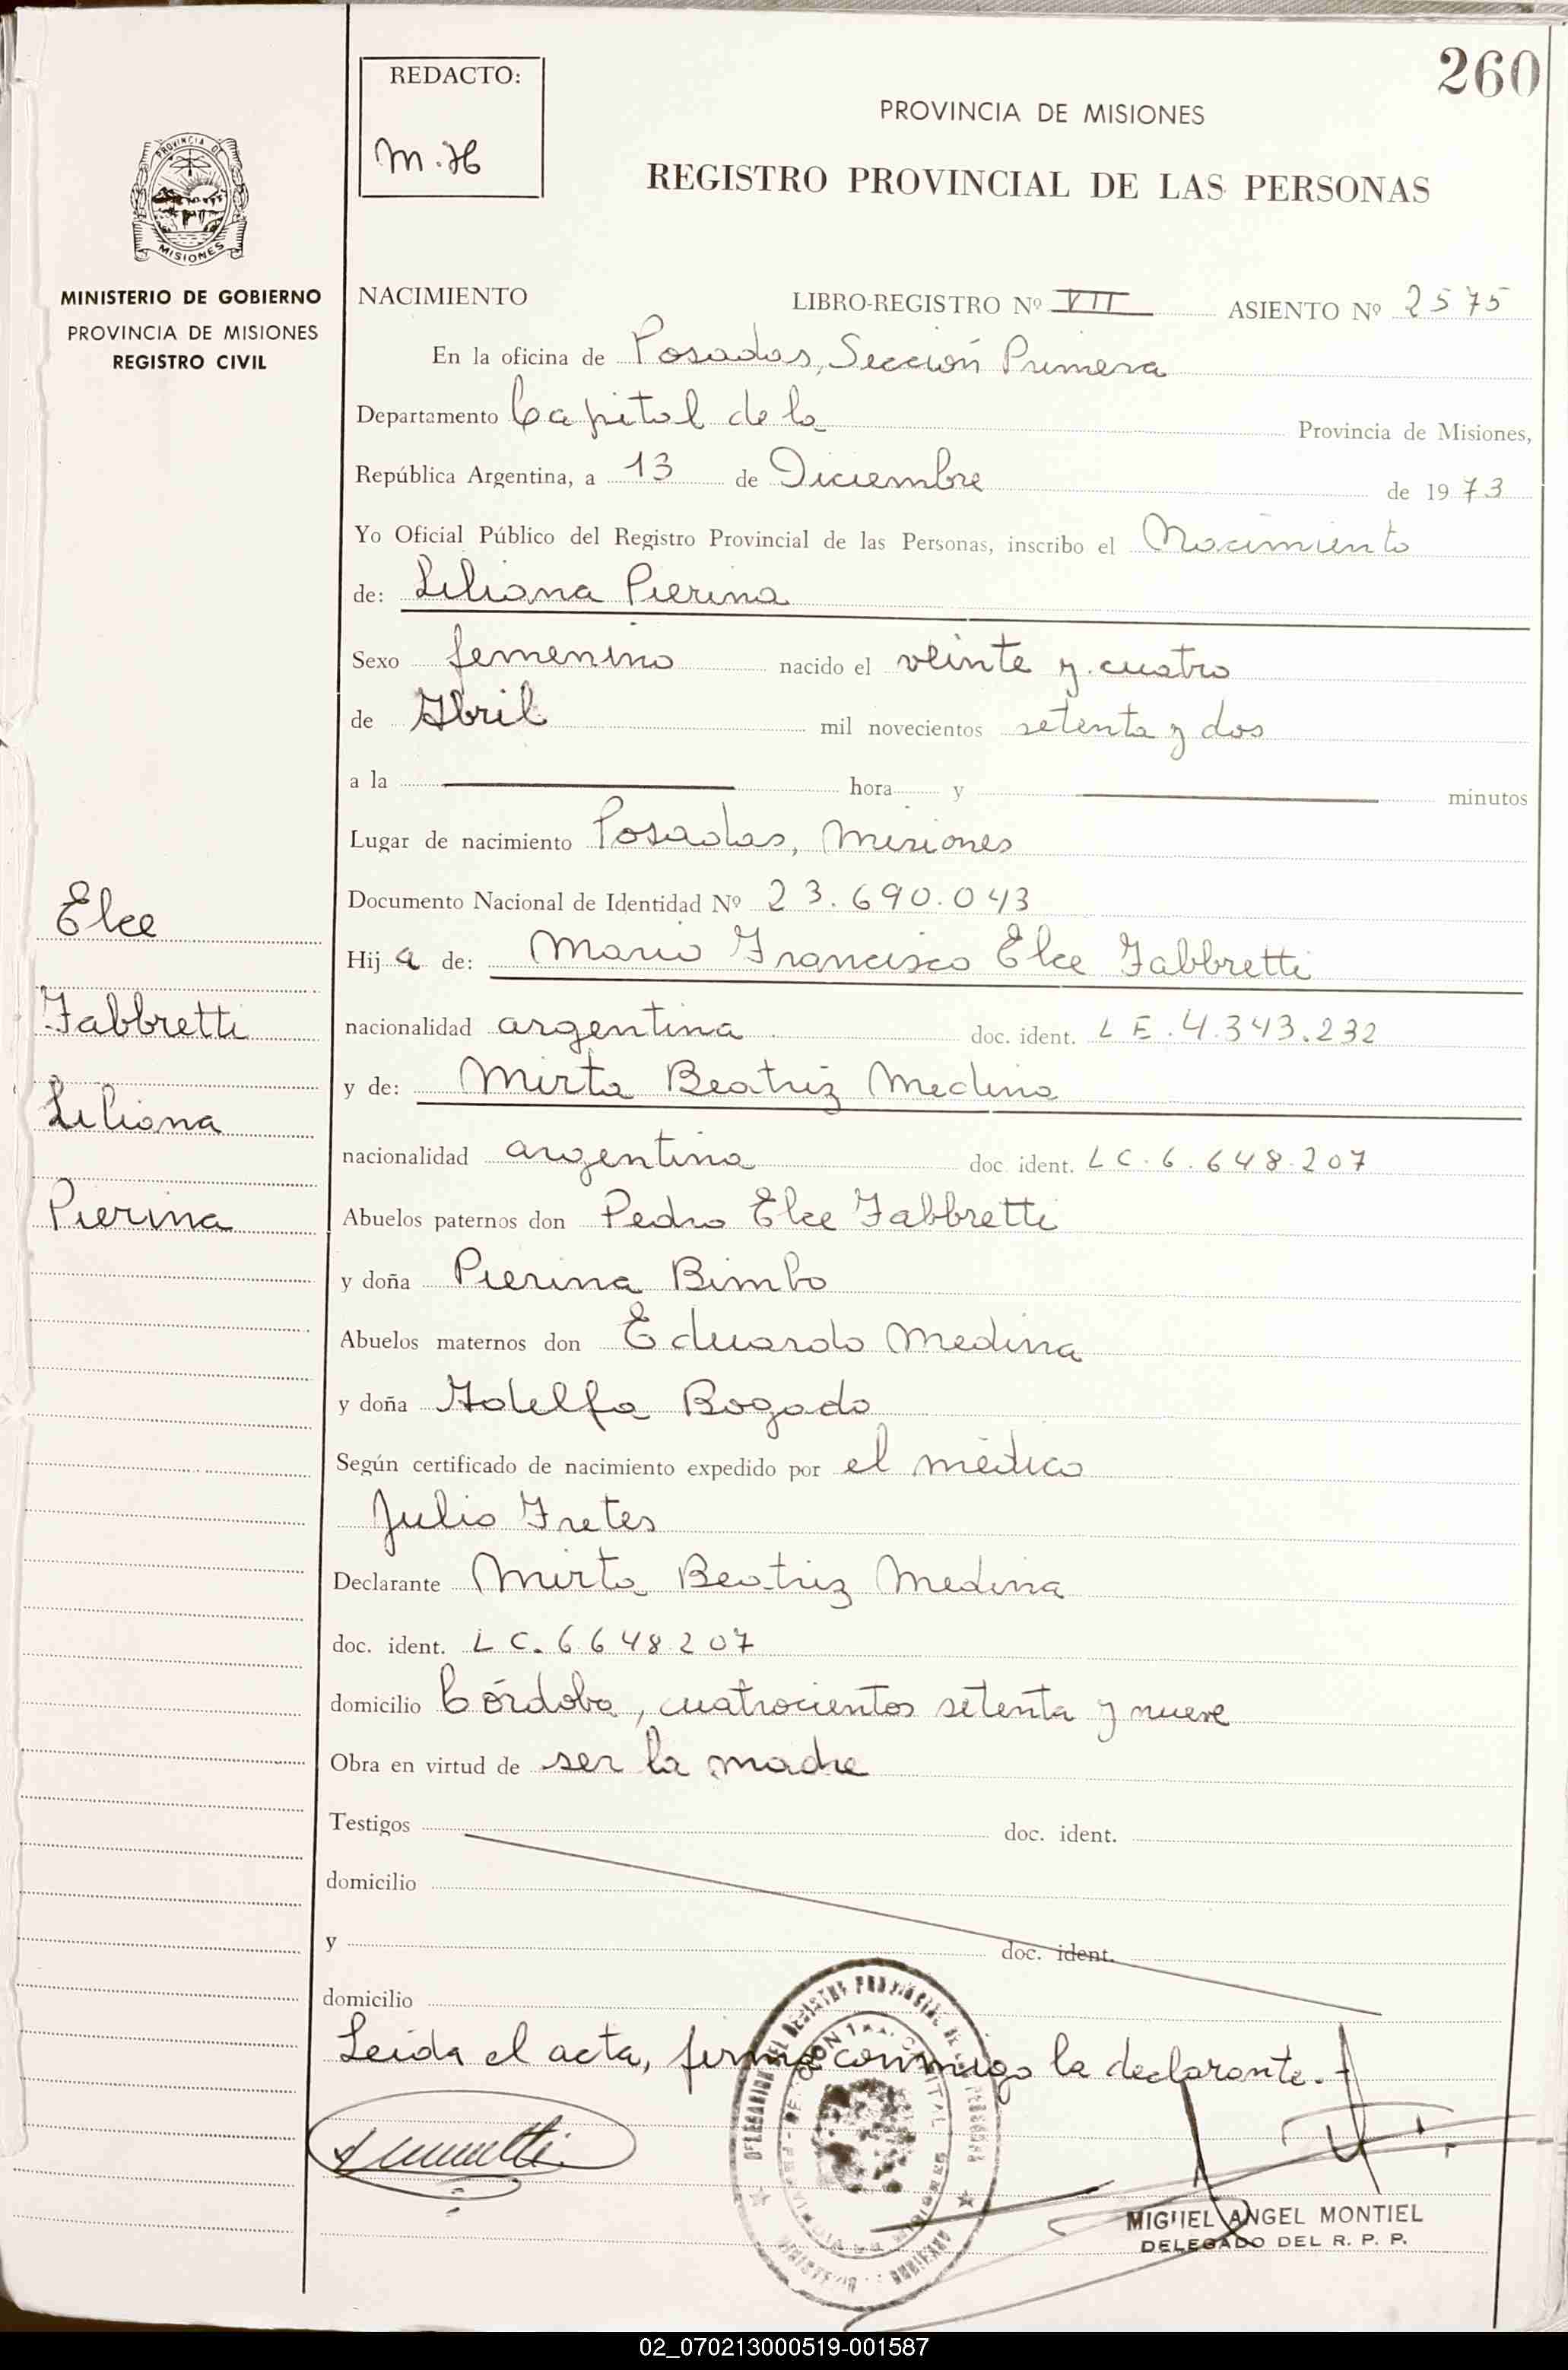 260
REDACTO:
M.H
PROVINCIA DE MISIONES
REGISTRO PROVINCIAL DE LAS PERSONAS
PROVINCIA DE
MISIONES
MINISTERIO DE GOBIERNO
PROVINCIA DE MISIONES
REGISTRO CIVIL
NACIMIENTO LIBRO-REGISTRO Nº VII ASIENTO Nº 2575
En la oficina de Posadas, Sección Primera
Departamento Capital de la Provincia de Misiones,
República Argentina, a 13 de Diciembre de 1973
Yo Oficial Público del Registro Provincial de las Personas, inscribo el Nacimiento
de: Liliana Pierina
Sexo femenino nacido el veinte y cuatro
de Abril mil novecientos setenta y dos
a la hora y minutos
Lugar de nacimiento Posadas, Misiones
Documento Nacional de Identidad Nº 23.690.043
Hija de: Mario Francisco Elce Fabbretti
nacionalidad argentina doc. ident. L E. 4.343.232
y de: Mirta Beatriz Medina
nacionalidad argentina doc. ident. L C. 6.648.207
Abuelos paternos don Pedro Elce Fabbretti
y doña Pierina Bimbo
Abuelos maternos don Eduardo Medina
y doña Adelfa Bogado
Según certificado de nacimiento expedido por el médico
Julio Fretes
Declarante Mirta Beatriz Medina
doc. ident. L C. 6648207
domicilio Córdoba, cuatrocientos setenta y nueve
Obra en virtud de ser la madre
Testigos doc. ident.
domicilio
y doc. ident.
domicilio
Leida el acta, firma conmigo la declarante.-
Elce
Fabbretti
Liliana
Pierina
MIGUEL ANGEL MONTIEL
DELEGADO DEL R. P. P.
02_070213000519-001587